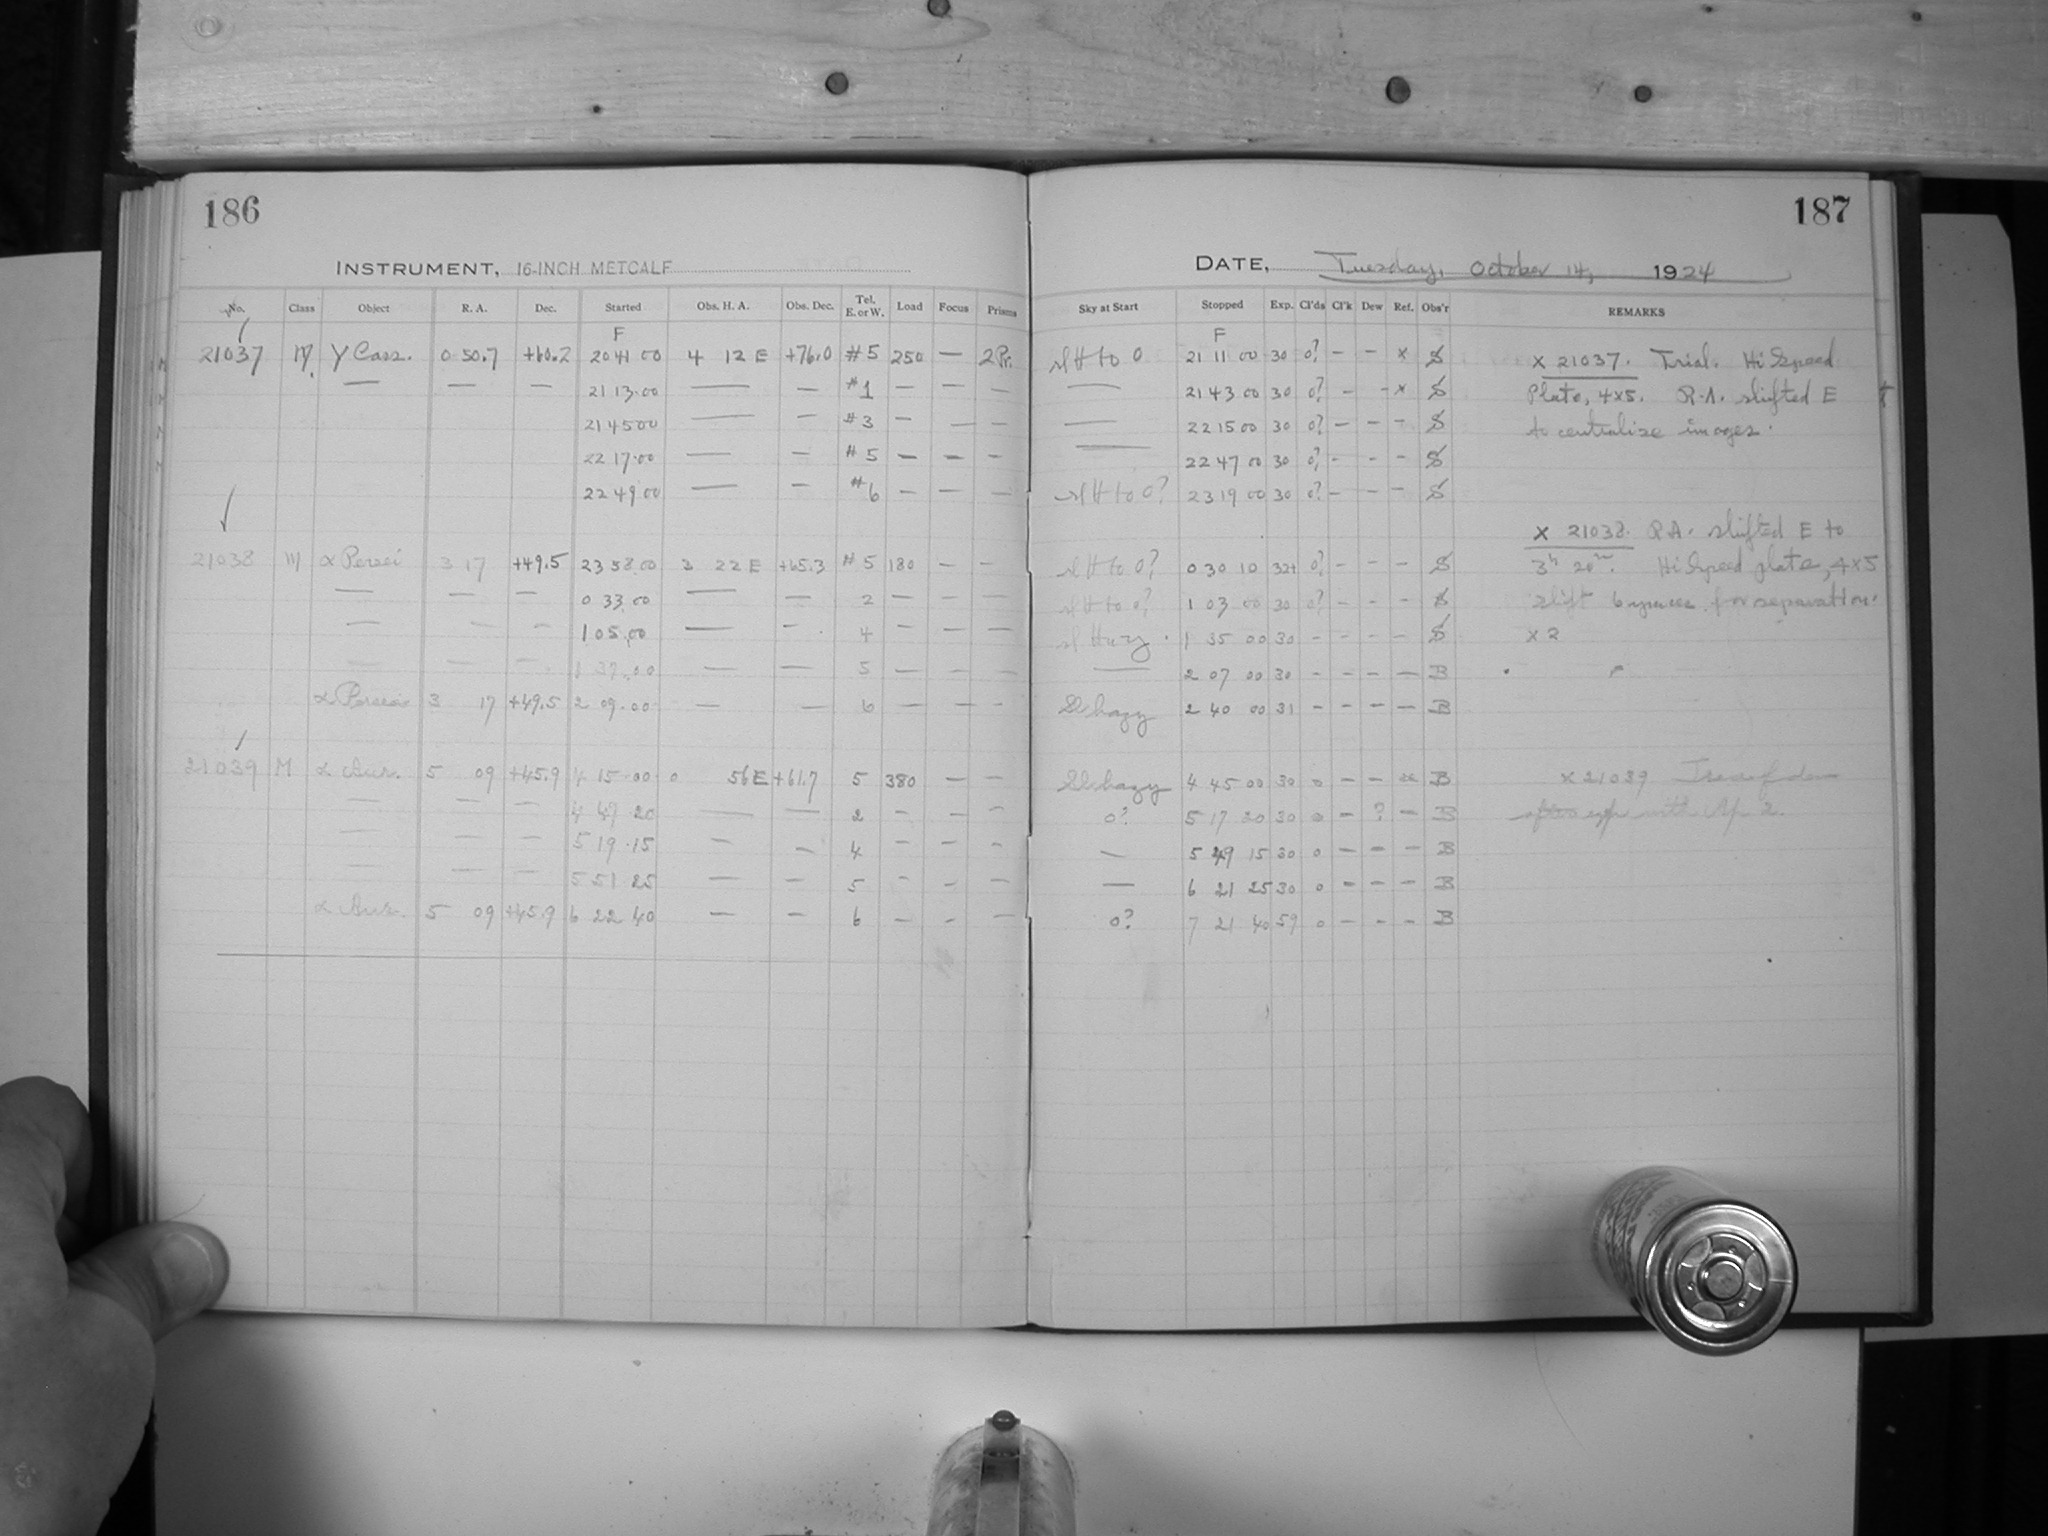 186
INSTRUMENT, 16-INCH METCALF
No. Class Object R. A. Dec. Started Obs. H. A. Obs. Dec. Tel. E. or W. Load Focus Prisms
F
21037 M γ Cass. 0 50.7 +60.2 20 41 00 4 12 E +76.0 #5 250 — 2 Pr.
— — — 21 13.00 — — #1 — — —
21 45 00 — — #3 — — —
22 17.00 — — #5 — — —
22 49.00 — — #6 — — —
21038 M α Persei 3 17 +49.5 23 58.00 3 22 E +65.3 #5 180 — —
— — — 0 33.00 — — 2 — — —
— — — 1 05.00 — — 4 — — —
— — — 1 37.00 — — 5 — — —
α Persei 3 17 +49.5 2 09.00 — — 6 — — —
21039 M α Aur. 5 09 +45.9 4 15.00 0 56 E +61.7 5 380 — —
— — — 4 47 20 — — 2 — — —
— — — 5 19.15 — — 4 — — —
— — — 5 51 25 — — 5 — — —
α Aur. 5 09 +45.9 6 22 40 — — 6 — — —
187
DATE, Tuesday, October 14, 1924
Sky at Start Stopped Exp. Cl'ds Cl'k Dew Ref. Obs'r REMARKS
F
sl H to 0 21 11 00 30 0? — — x S x 21037. Trial. Hi Speed
— 21 43 00 30 0? — — x S Plate, 4x5. R.A. shifted E
— 22 15 00 30 0? — — — S to centralize images.
— 22 47 00 30 0? — — — S
sl H to 0? 23 19 00 30 0? — — — S
x 21038. R.A. shifted E to
sl H to 0? 0 30 10 32+ 0? — — — S 3h 20m. Hi Speed plate, 4x5
sl H to 0? 1 03 00 30 0? — — — S shift for separation.
sl Hazy. 1 35 00 30 — — — — S x 2
— 2 07 00 30 — — — — B
Sl hazy 2 40 00 31 — — — — B
Sl hazy 4 45 00 30 0 — — B x 21039
0? 5 17 20 30 0 — ? — B exp with 2.
— 5 49 15 30 0 — — — B
— 6 21 25 30 0 — — — B
0? 7 21 40 59 0 — — — B